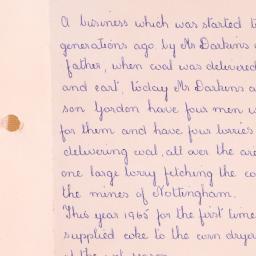 A business which was started t
generations ago, by Mr Darkins
father, when coal was delivered
and cart, today Mr Darkins a
son Gordon have four men w
for them and have four lorries
delivering coal, all over the are
one large lorry fetching the co
the mines of Nottingham.
This year 1965 for the first time
supplied coke to the corn dryer